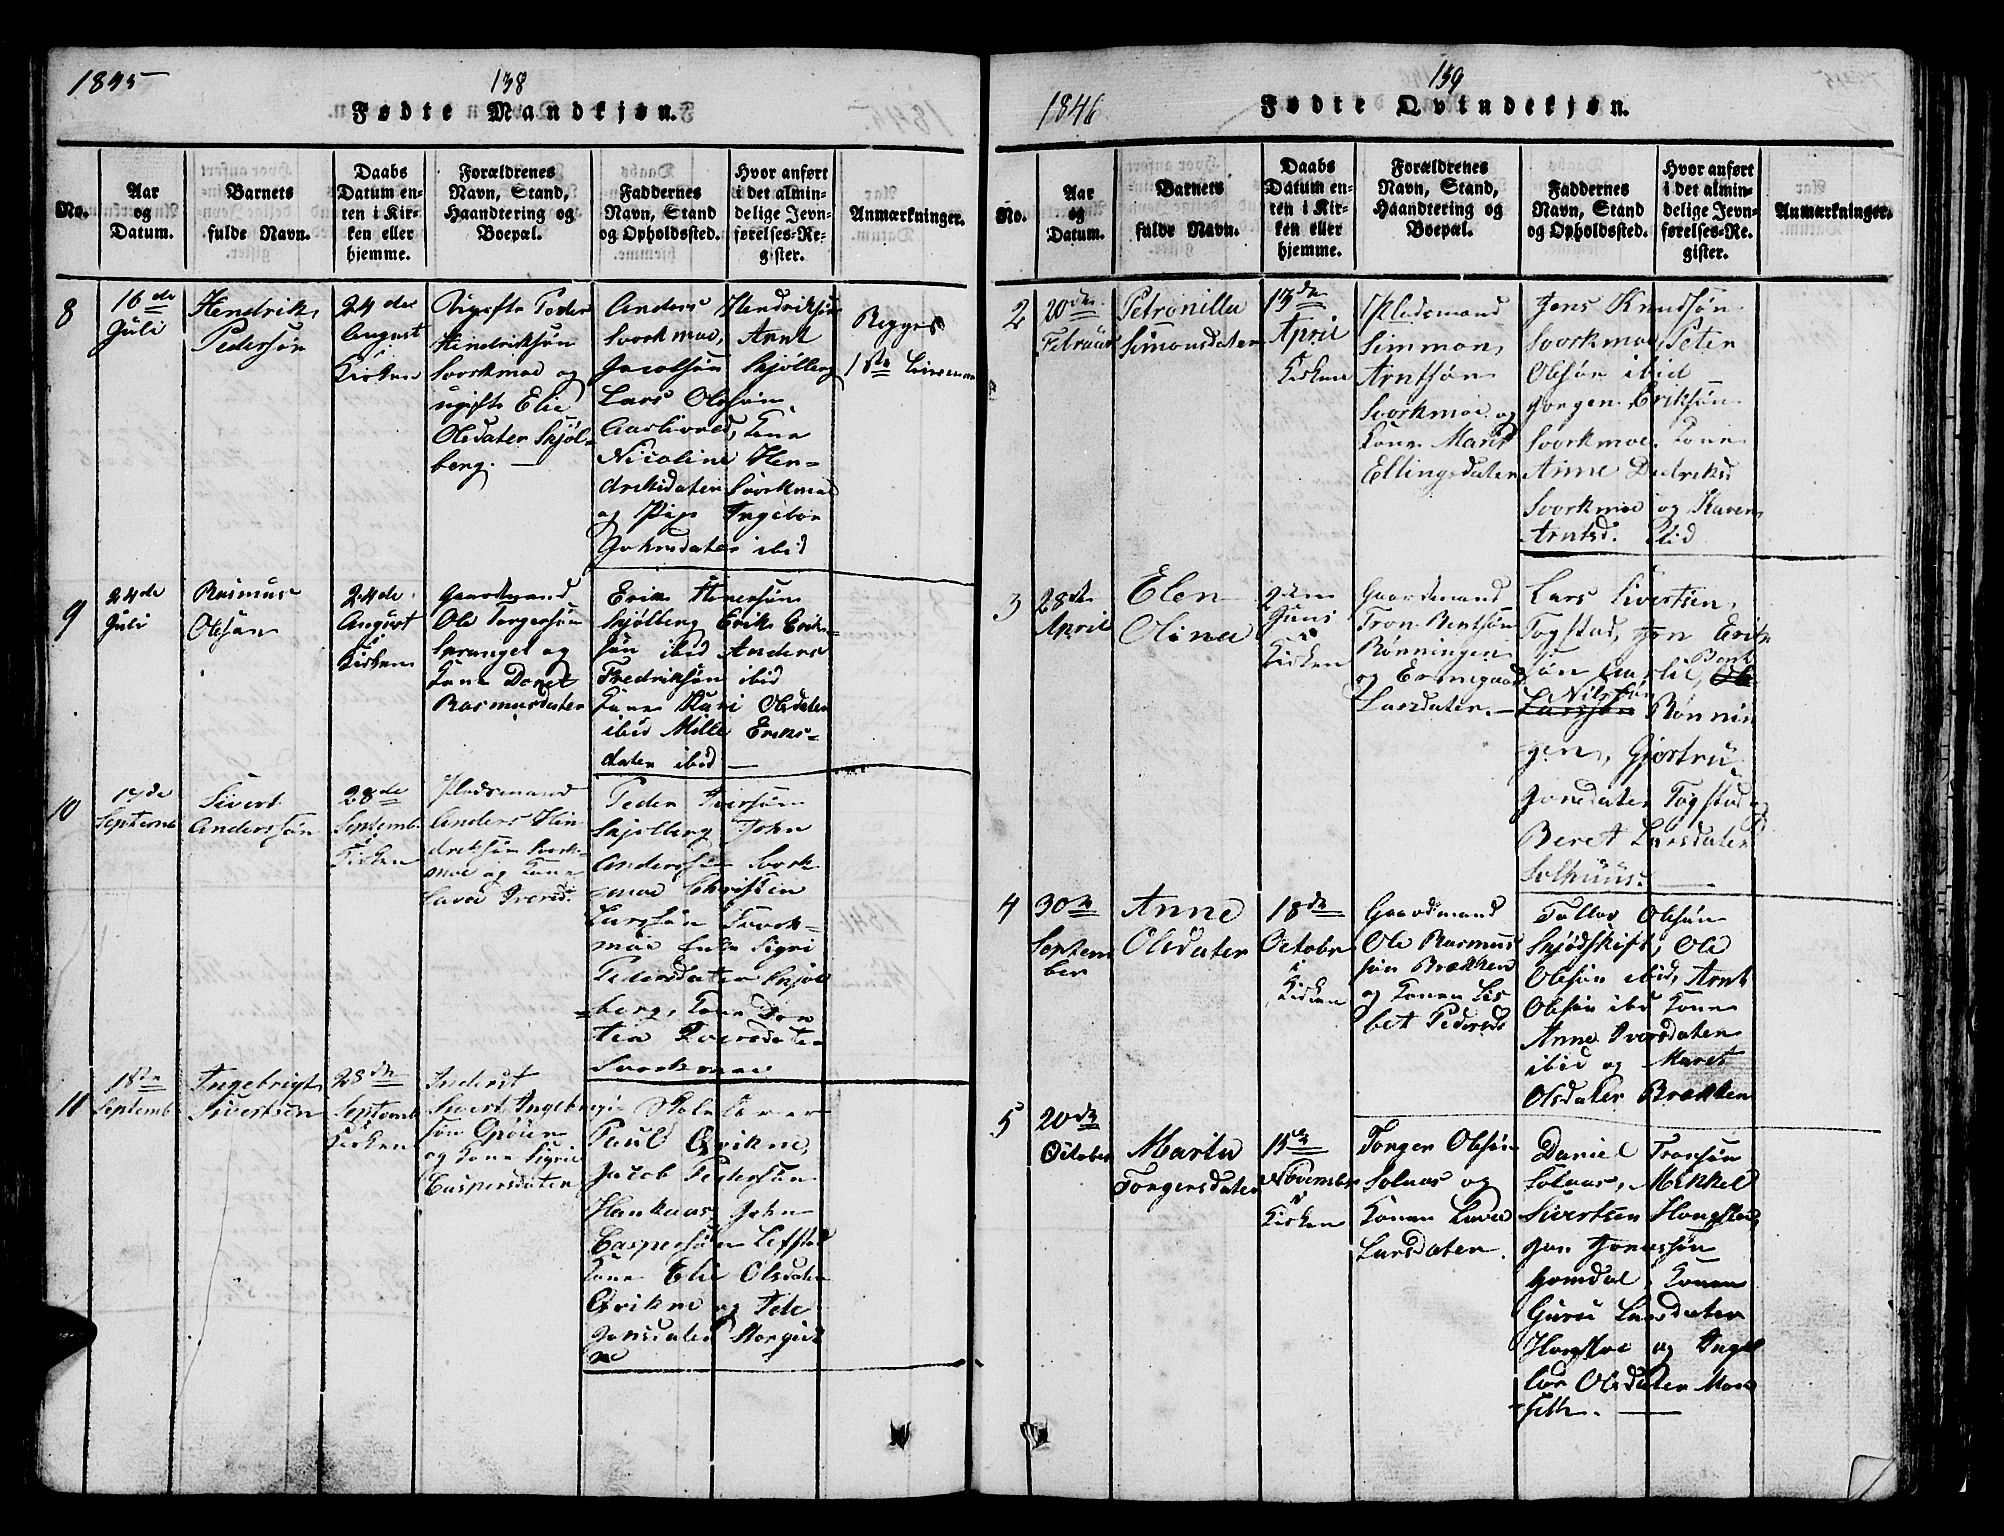 1845
138
Fødte Mandkjøn.
No.
Aar
og
Datum.
Barnets
fulde Navn.
Daabs
Datum en-
ten i Kir-
ken eller
hjemme.
Forældrenes
Navn, Stand,
Haandtering og
Boepæl.
Faddernes
Navn, Stand
og Opholdssted.
Hvor anført
i det almin-
delige Jevn-
førelses-Re-
gister.
Anmærkninger.
8
16de
Juli
Hendrik
Pedersøn
24de
August
Kirken
Ugifte Peder
Hindriksøn
Svorkmoe og
ugifte Elie
Olsdater Skjøl-
berg. —
Anders Hendriksøn
Svorkmoe, Arnt
Jacobsøn Skjølberg
Lars Olesøn
Aarlivold, Kone
Nicoline Hen-
drikdater Svorkmoe
og Pige Ingebor
Johnsdater ibid
Begges
1ste
9
24de
Juli
Rasmus
Olesøn
24de
August
i
Kirken
Gaardmand
Ole Torgersøn
Sprangel og
Kone Doret
Rasmusdater
Erik Iversøn
Skjølberg Erik Erik-
søn ibid Anders
Fredriksøn ibid
Kone Kari Olsdater
ibid Mille Eriks-
dater ibid —
10
17de
Septemb
Sivert
Anderssøn
28de
Septemb
i
Kirken
Pladsmand
Anders Hin
driksøn Svork-
moe og Kone
Lava Iversd.
Peder Iversøn
Skjølberg John
Anderssøn Svork
moe Christen
Larssøn Svork-
moe Enke Sigri
Pedersdater Skjøl
berg, Kone Dor
tea Iversdater
Svorkmoe
11
18de
Septemb
Ingebrigt
Sivertsen
28de
Septemb
i
Kirken
Inderst
Sivert Ingebrigt
søn Gjøren
og Kone Sigrie
Caspersdater
Skolelærer
Paul Qvikne,
Jacob Pedersøn
Haukaas John
Caspersøn Lefstad
Kone Elie Olsdater
Qvikne og Pige
Jonsdater
1846
139
Fødte Qvindekjøn.
No.
Aar
og
Datum.
Barnets
fulde Navn.
Daabs
Datum en-
ten i Kir-
ken eller
hjemme.
Forældrenes
Navn, Stand,
Haandtering og
Boepæl.
Faddernes
Navn, Stand
og Opholdssted.
Hvor anført
i det almin-
delige Jevn-
førelses-Re-
gister.
Anmærkninger.
2
20de
Februar
Petronilla
Simonsdater
13de
April
i
Kirken
Pladsmand
Simmon
Arntsøn
Svorkmoe og
Kone Marit
Ellingsdater
Jens Knudsøn
Svorkmoe, Peter
Olesøn ibid
Jørgen Eriksøn
Svorkmoe. Kone
Anne Dedriksd
Svorkmoe og Karen
Arntsd. ibid
3
28de
April
Elen
Olina
2den
Juni
i
Kirken
Gaardmand
Tron Bentsøn
Rønningen
og Ermegaard
Larsdater. —
Lars Sivertsen,
Togstad, Jon Erik
søn Aarlie, Bent
Nilssøn
Larssøn Rønnin
gen, Gjertru
Jonsdater Togstad og
Beret Larsdater
Solhuus. —
4
30te
Septem
ber
Anne
Olsdater
18de
Octobr
i
Kirken
Gaardmand
Ole Rasmus
søn Brækken
og Konen Lis
bet Pedersd
Tollov Olesøn
Skjødskift, Ole
Olesøn ibid, Arnt
Olesøn ibid Kone
Anne Iversdater
ibid og Maret
Olsdater Brækken
5
20de
October
Marta
Torgersdater
15de
Novembr
i
Kirken
Torger Olesøn
Solaas og
Konen Lava
Larsdater.
Daniel Tronsøn
Solaas, Mikkel
Sivertsen Hongslo,
Jon Jonassøn
Gomdal, Konen
Guru Larsdater
Hongsloe og Inge
bor Olsdater Moe
seth. —